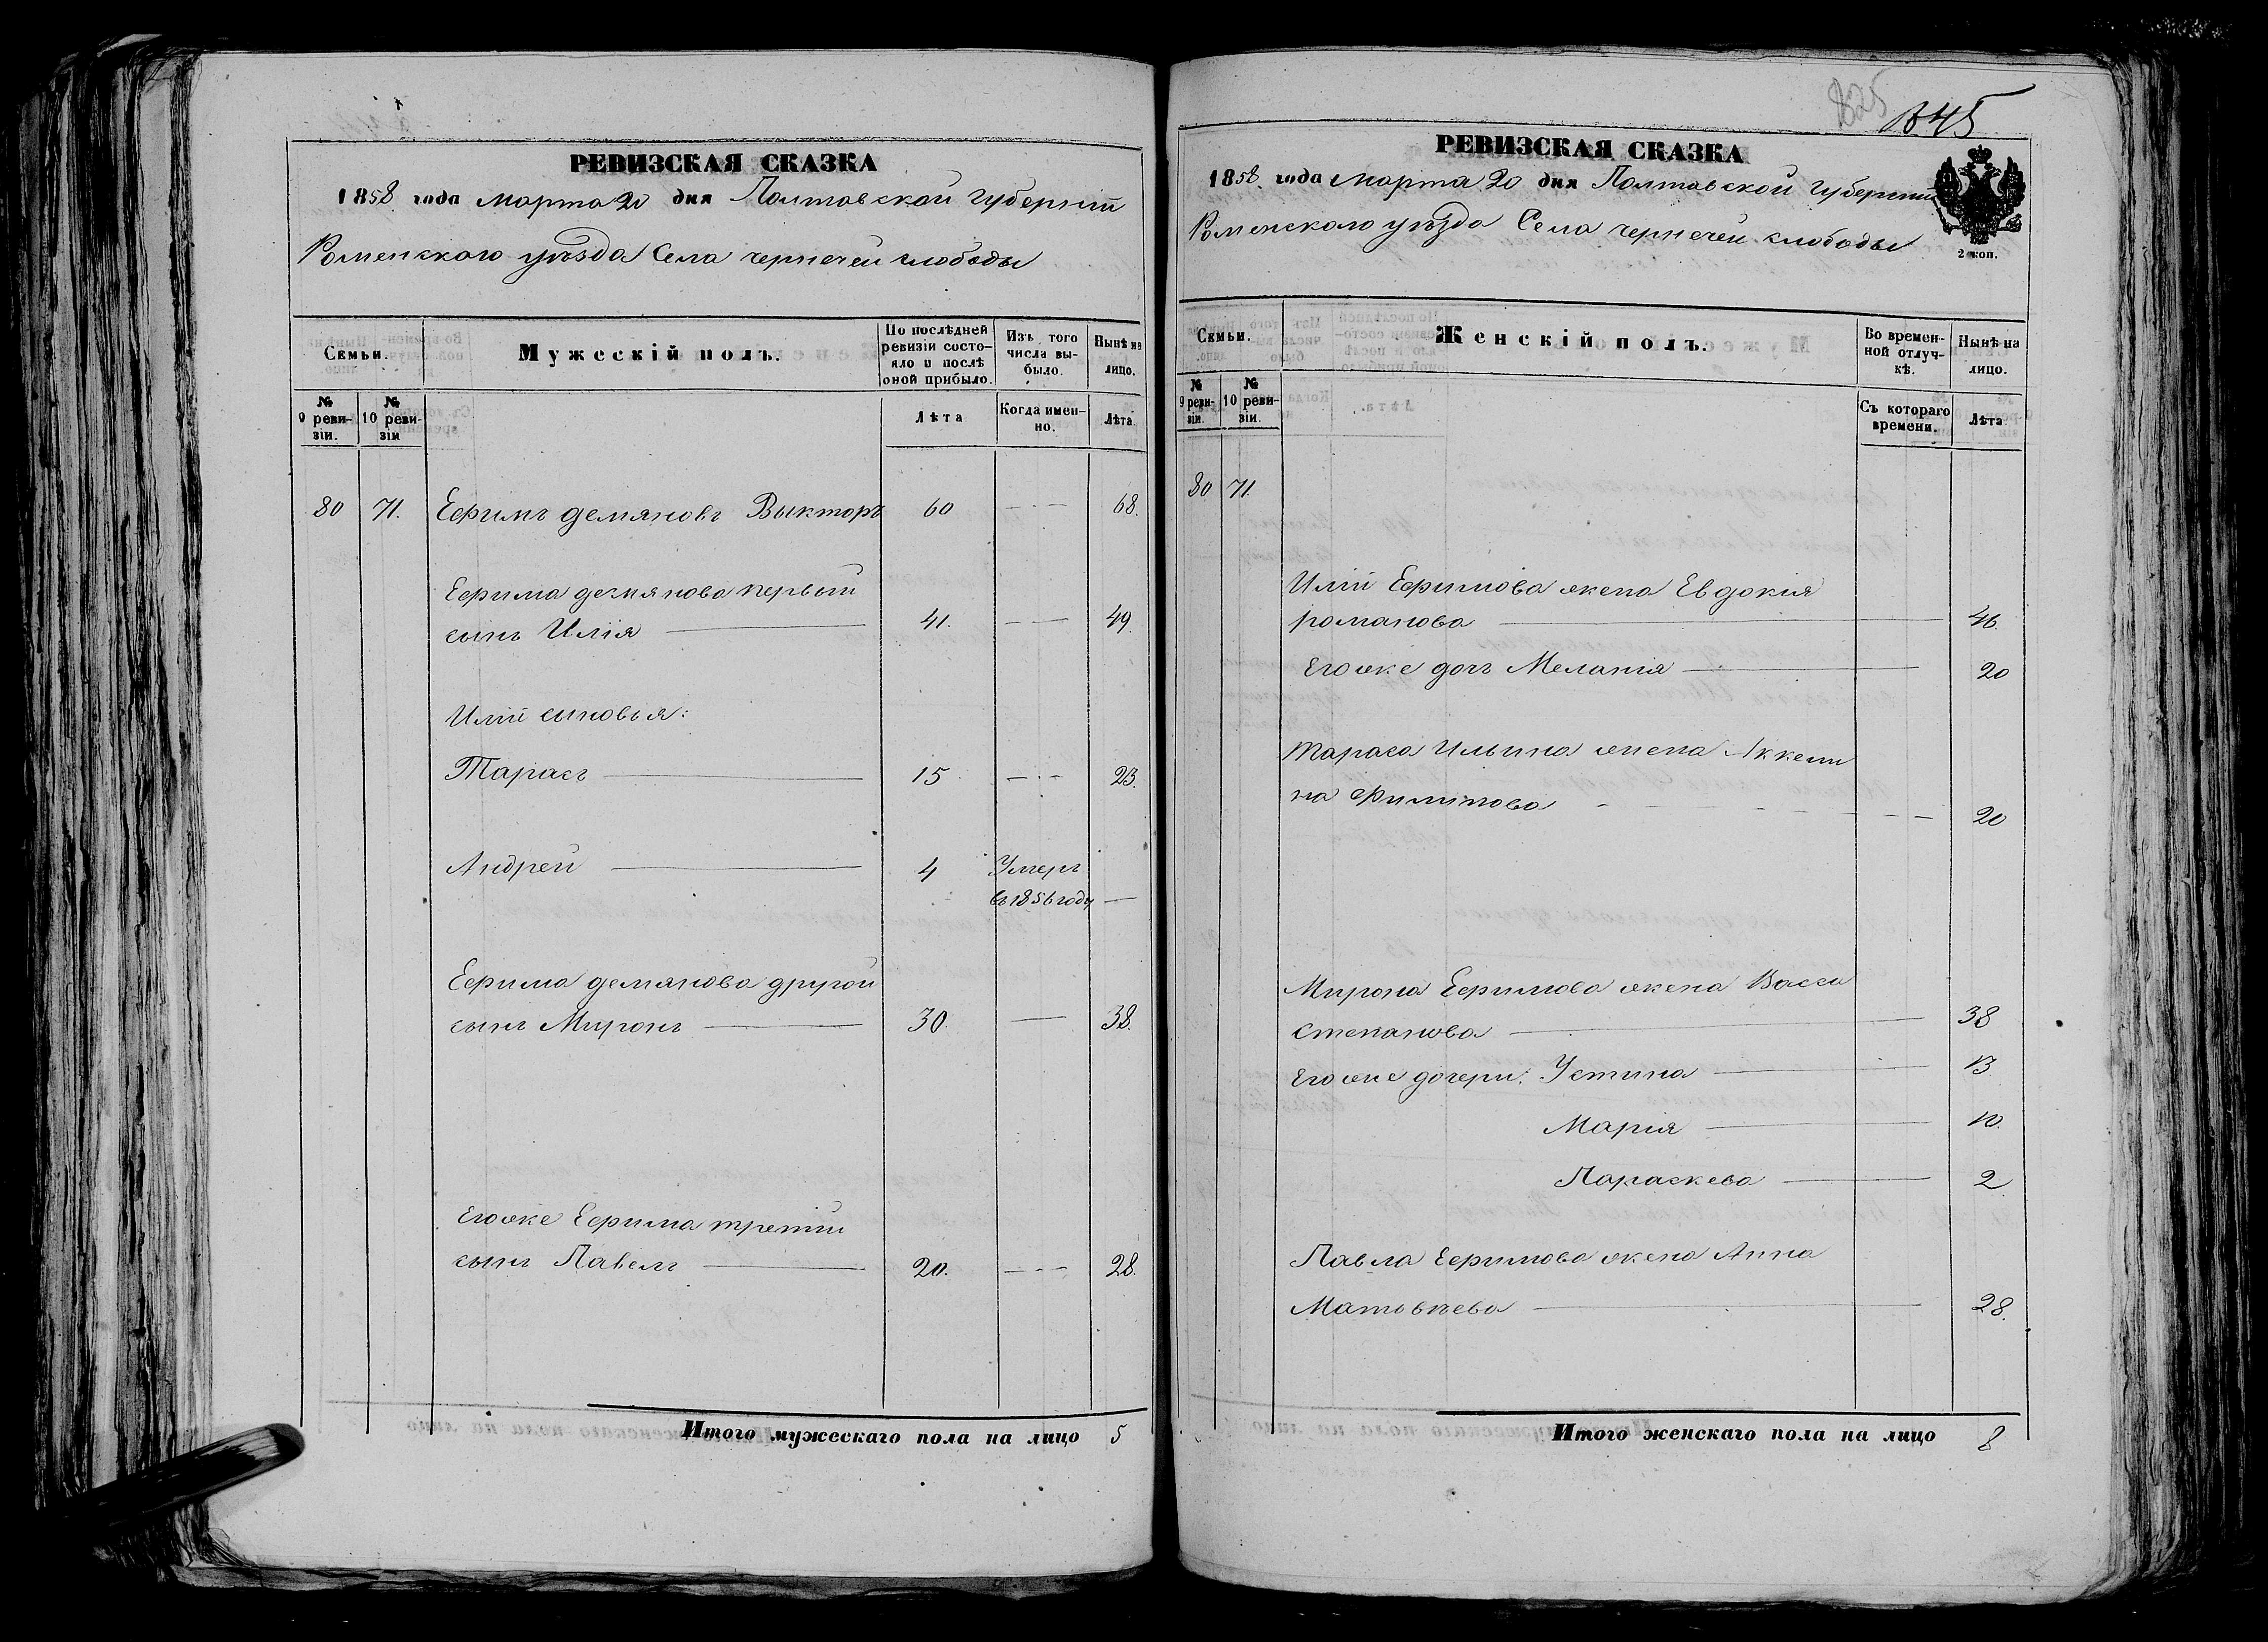 РЕВИЗСКАЯ СКАЗКА
1858 года Марта 20 дня Полтавской Губерніи
Роменского уѣзда Села Чернечей слободы
Семьи.
Мужескій полъ.
По послѣдней ревизіи состояло и послѣ оной прибыло.
Изъ того числа выбыло.
Нынѣ на лицо.
№ 9 ревизіи.
№ 10 ревизіи
Лѣта
Когда именно.
Лѣта.
80 71. Ефимъ демяновъ Выкторъ 60 68.
Ефима демянова первый
сынъ Илія 41. 49.
Иліи сыновья:
Тарасъ 15 23.
Андрей 4 Умеръ
въ 1856 году
Ефима демянова другой
сынъ Миронъ 30. 38.
Егоже Ефима третій
сынъ Павелъ 20. 28.
Итого мужескаго пола на лицо 5
825
845
РЕВИЗСКАЯ СКАЗКА
1858 года Марта 20 дня Полтавской Губерніи
Роменского уѣзда Села Чернечей слободы
2 коп.
Семьи.
Женскій полъ.
Во временной отлучкѣ.
Нынѣ на лицо.
№ 9 ревизіи.
№ 10 ревизіи.
Съ котораго времени.
Лѣта
80 71.
Иліи Ефимова жена Евдокія
романова 46.
Егоже дочъ Меланія 20
Тараса Ильина жена Аккели
на Филипова 20
Мирона Ефимова жена Васса
Степанова 38
Егоже дочери: Устина 13
Марія 10.
Параскева 2
Павла Ефимова жена Анна
Матовѣева 28.
Итого женскаго пола на лицо 8